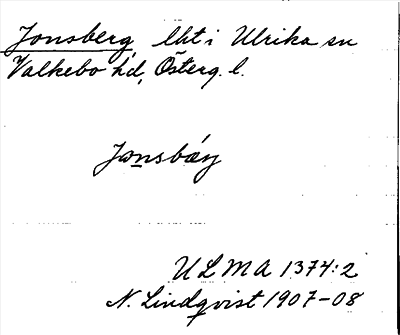 Jonsberg, lht i Ulrika sn
Valkebo hd, Österg. l.
Jonsbäry
ULMA 1374:2
N. Lindqvist 1907-08